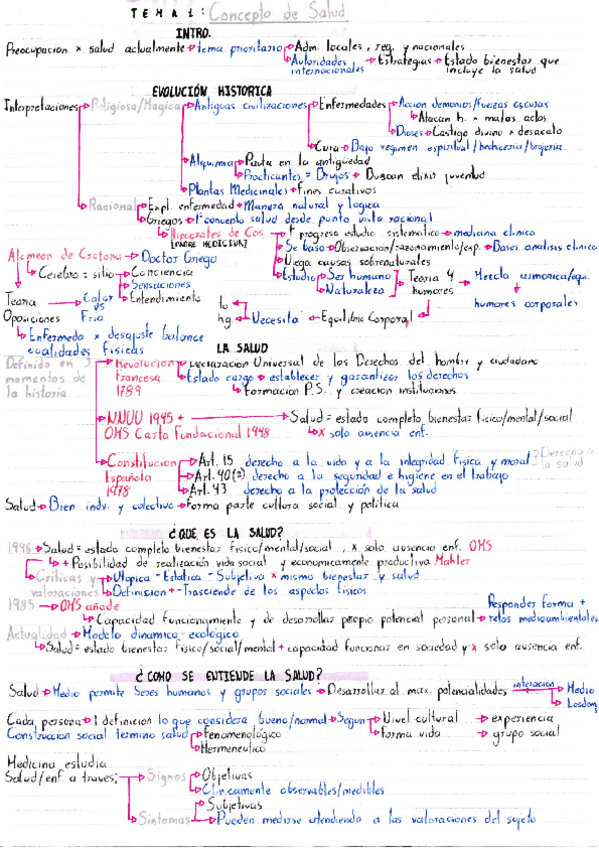 TEMA 1: Concepto de Salud
INTRO.
Preocupacion x salud actualmente → tema prioritario → Adm. locales, reg. y nacionales
→ Autoridades internacionales → Estrategias → Estado bienestar que incluye la salud
EVOLUCIÓN HISTORICA
Interpretaciones → Religiosa/Magica → Antiguas civilizaciones → Enfermedades → Accion demonios/fuerzas oscuras
→ Atacan h. x malos actos
→ Dioses → Castigo divino x desacato
→ Cura → Bajo regimen espiritual/hechiceria/brujeria
→ Alquimia → Pauta en la antigüedad
→ Practicantes = Brujos → Buscan elixir juventud
→ Plantas Medicinales → Fines curativos
→ Racional → Expl. enfermedad → Manera natural y logica
→ Griegos → 1º concepto salud desde punto vista racional
→ Hipocrates de Cos → + progreso estudio sistematico → medicina clinica
[PADRE MEDICINA]
→ Se basa → Observacion/razonamiento/exp. → Bases analisis clinico
→ Niega causas sobrenaturales
→ Estudio → Ser humano
→ Naturaleza
→ Teoria 4 humores → Mezcla armonica/equi. humores corporales
Alcmeon de Crotona → Doctor Griego
→ Cerebro = sitio → Conciencia
→ Sensaciones
→ Entendimiento
Teoria Oposiciones → Calor vs Frio
→ Enfermedad x desajuste balance cualidades fisicas
Necesita → Equilibrio Corporal
LA SALUD
Definido en 3 momentos de la historia
→ Revolucion Francesa 1789 → Declaracion Universal de los Derechos del hombre y ciudadano
→ Estado cargo → establecer y garantizar los derechos
→ Formacion P.S. y creacion instituciones
→ NNUU 1945 + OMS Carta Fundacional 1948 → Salud = estado completo bienestar fisico/mental/social
→ x solo ausencia enf.
→ Constitucion Española 1978 → Art. 15 derecho a la vida y a la integridad fisica y moral
→ Art. 40(2) derecho a la seguridad e higiene en el trabajo
→ Art. 43 derecho a la protección de la salud
Derecho a la salud
Salud → Bien indv. y colectivo → Forma parte cultura social y politica
¿QUE ES LA SALUD?
1946 → Salud = estado completo bienestar fisico/mental/social, x solo ausencia enf. OMS
→ + Posibilidad de realización vida social y economicamente productiva Mahler
→ Criticas y valoraciones → Utopica - Estatica - Subjetiva x mismo bienestar y salud
→ Definicion + - Trasciende de los aspectos fisicos
1985 → OMS añade
→ Capacidad funcionamiento y de desarrollar propio potencial personal → Responder forma + retos medioambientales
Actualidad → Modelo dinamico-ecologico
→ Salud = estado bienestar fisico/social/mental + capacidad funcionar en sociedad y x solo ausencia enf.
¿COMO SE ENTIENDE LA SALUD?
Salud → Medio permite Seres humanos y grupos sociales → Desarrollar al max. potencialidades interacion → Medio
Cada persona → 1 definicion lo que considera bueno/normal → Segun → Nivel cultural → experiencia
→ Forma vida → grupo social
Construccion social termino salud → Fenomenológico
→ Hermeneutico
Medicina estudia
Salud/enf a traves; → Signos → Objetivas
→ Clinicamente observables/medibles
→ Sintomas → Subjetivas
→ Pueden medirse atendiendo a las valoraciones del sujeto